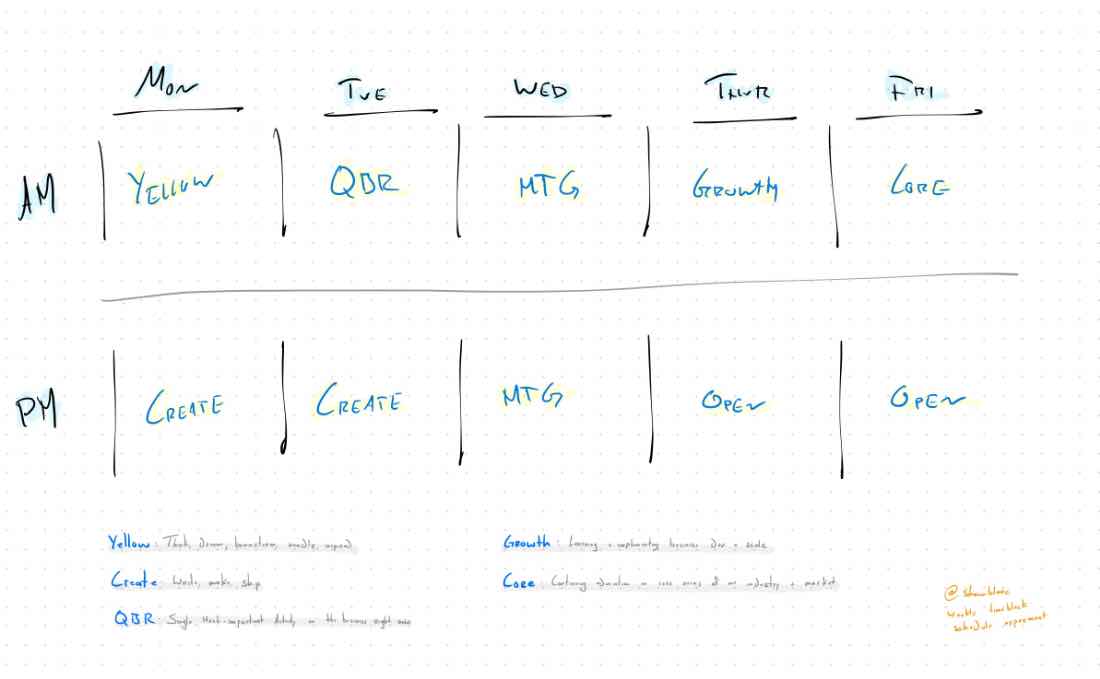 Mon TUE WED THUR FRI
AM YELLOW QBR MTG GROWTH CORE
PM CREATE CREATE MTG OPEN OPEN
Yellow: Think, dream, brainstorm, doodle, expand
Growth: Learning + implementing business dev + scale
Create: Work, make, ship
Core: Continuing education in core areas of my industry + market
QBR: Single most-important activity in the business right now
weekly timeblock
schedule experiment